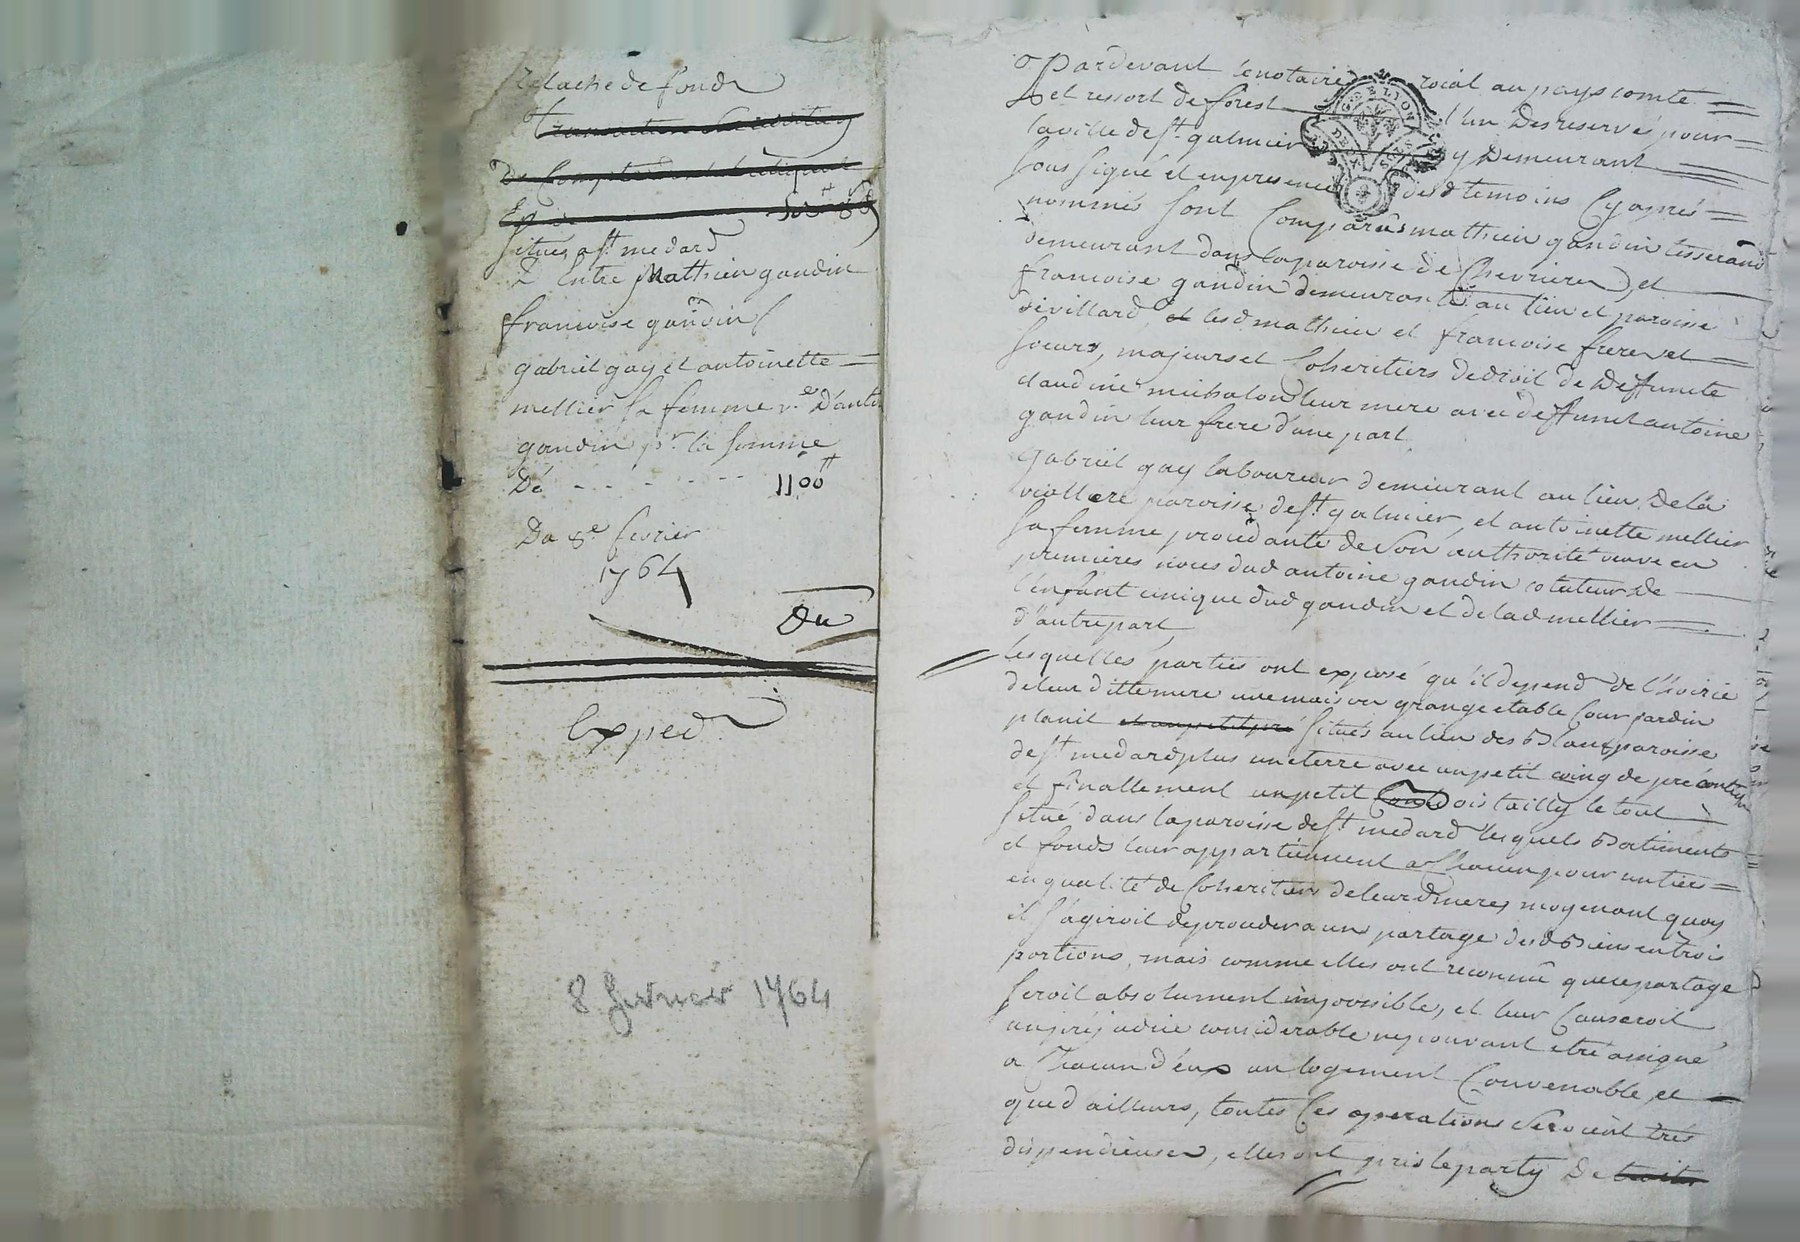 Relache de fond
situés a st medard
Entre Mathieu gandin
francoise gandin
gabriel gay et antoinette
mellier sa femme v.e D'anto
gandin pr la somme
De 1100tt
Du 8e fevrier
1764
Du
Exped
8 fevrier 1764
Pardevant le notaire roial au pays comté
et ressort de forest l'un Des reservés pour
la ville de st galmier y Demeurant
soussigné et en presence des temoins cy apres
nommés sont Comparus mathieu gandin tisserand
demeurant dans la paroisse de Chevrieres et
francoise gandin demeurante au lieu et paroisse
de villard, lesd mathieu et francoise frere et
soeurs, majeurs et Coheritiers de droit de Deffuncte
claudine michalon leur mere avec deffunct antoine
gandin leur frere d'une part
Gabriel gay laboureur demeurant au lieu De la
paroisse de st galmier, et antoinette mellier
sa femme, procedante de son authorité veuve en
premieres noces dud antoine gandin cotuteur de
l'enfant unique dud gandin et de lad mellier
d'autre part
lesquelles parties ont exposé qu'il depend de l'hoirie
de leur ditte mere une maison grange etable Cour jardin
situés au lieu des paroisse
de st medard plus une terre avec un petit coing de pre
et finallement un petit bois tailly le tout
situé dans la paroisse de st medard lesquels Batiments
et fonds leur appartiennent a Chacun pour un tiers
en qualité de Coheritiers de leurd mere, moyenant quoy
il s'agiroit de proceder a un partage desd Biens en trois
portions, mais comme elles ont reconnu que ce partage
seroit absolument impossible, et leur Causeroit
un prejudice considerable ne pouvant etre assigné
a Chacun d'eux un logement Convenable, et
que d'ailleurs, toutes Ces operations seroient très
dispendieuses, elles ont pris le party De